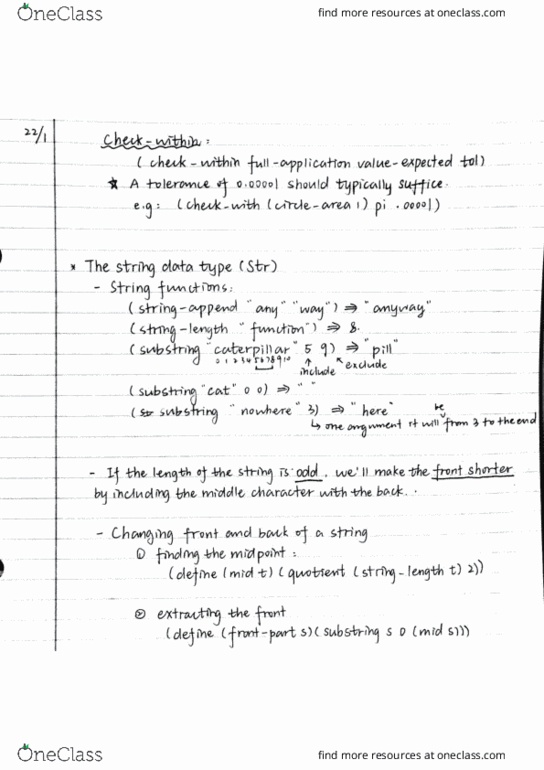 OneClass
find more resources at oneclass.com
22/1
Check-within:
(check-within full-application value-expected tol)
* A tolerance of 0.00001 should typically suffice.
e.g: (check-with (circle-area 1) pi .00001)
* The string data type (Str)
- String functions:
(string-append "any" "way") ⇒ "anyway"
(string-length "function") ⇒ 8.
(substring "caterpillar" 5 9) ⇒ "pill"
0 1 2 3 4 5 6 7 8 9 10
include
exclude
(substring "cat" 0 0) ⇒ " "
(str substring "nowhere" 3) ⇒ "here"
↳ one argument it will be from 3 to the end
- If the length of the string is odd, we'll make the front shorter
by including the middle character with the back..
- Changing front and back of a string
① finding the midpoint:
(define (mid t) (quotient (string-length t) 2))
② extracting the front
(define (front-part s) (substring s 0 (mid s)))
OneClass
find more resources at oneclass.com